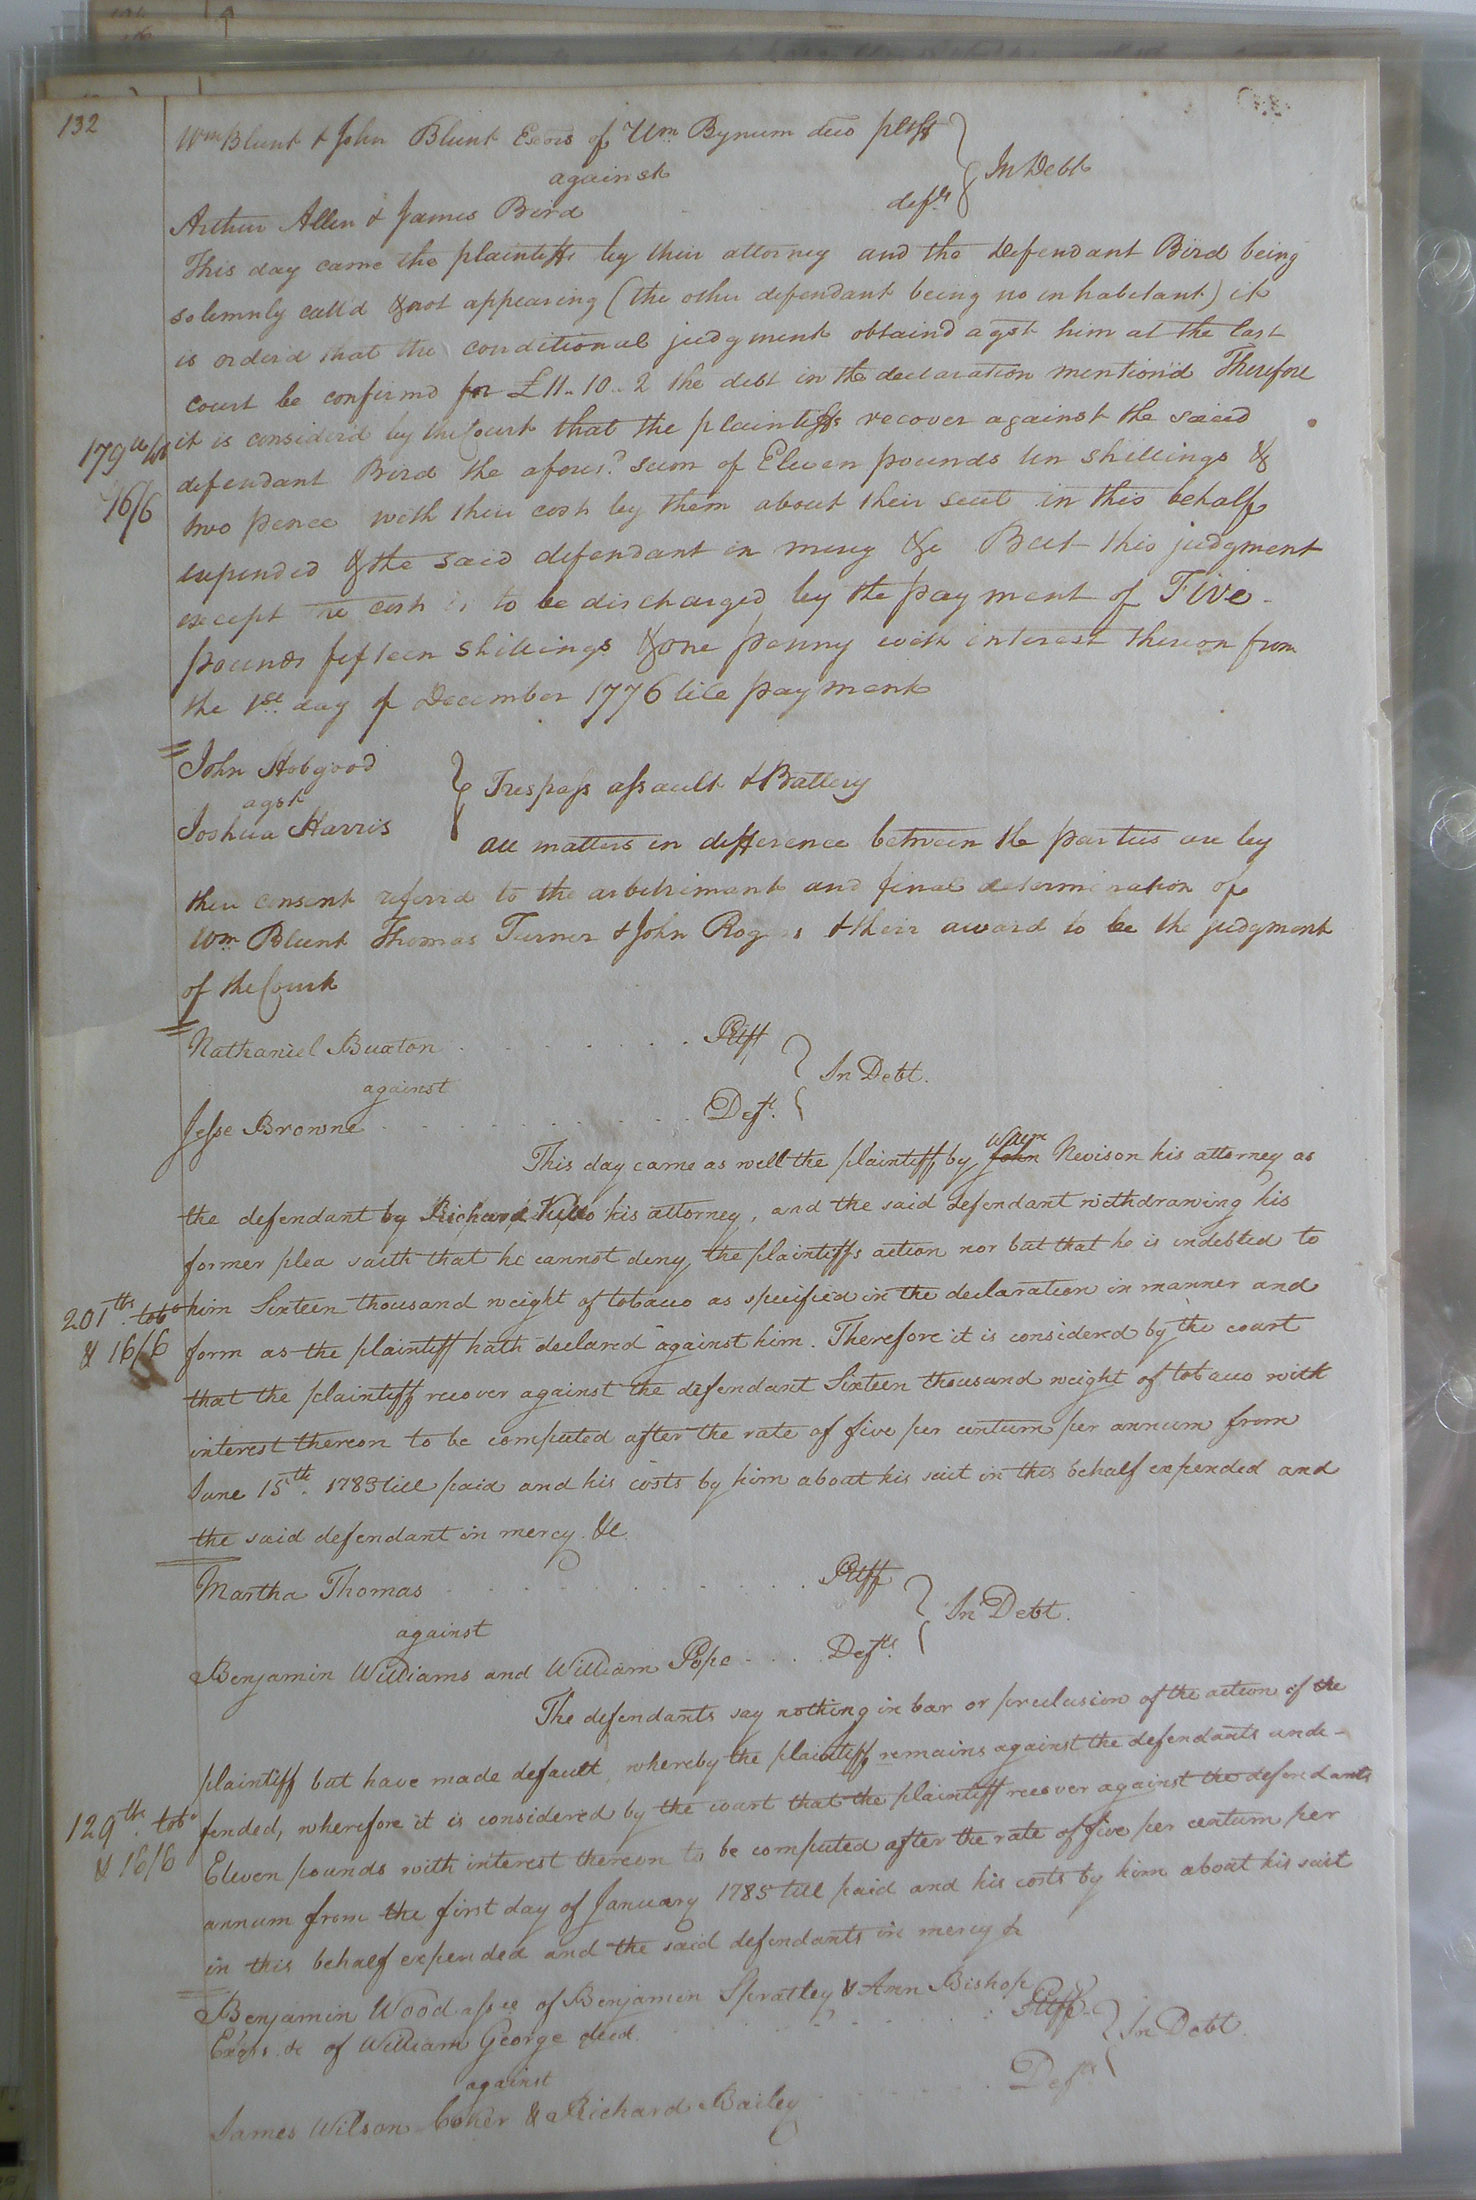 132
Wm Blunt & John Blunt Exors of Wm Bynum decd pltffs
against
In Debt
Arthur Allen & James Bird defts
This day came the plaintiffs by their attorney and the defendant Bird being
solemnly call'd & not appearing (the other defendant being no inhabitant) it
is orderd that the conditional judgment obtaind agst him at the last
court be confirmd for £11..10..2 the debt in the declaration mention'd Therefore
it is considerd by the Court that the plaintiffs recover against the said
179 lb tob
defendant Bird the aforesd. sum of Eleven pounds ten shillings &
16/6
two pence with their costs by them about their suit in this behalf
expended & the said defendant in mercy &c But this judgment
except ye costs is to be discharged by the payment of Five
pounds fifteen shillings & one penny with interest thereon from
the 1st. day of December 1776 till payment
John Hobgood
agst
Joshua Harris
Trespass assault & Battery
all matters in difference between the parties are by
their consent referrd to the arbitriment and final determination of
Wm Blunt Thomas Turner & John Rogers & their award to be the judgment
of the Court
Nathaniel Buxton Pltff
against
In Debt.
Jesse Browne Deft.
This day came as well the plaintiff by John Willm Nevison his attorney as
the defendant by Richard Kello his attorney, and the said defendant withdrawing his
former plea saith that he cannot deny the plaintiffs action nor but that he is indebted to
him Sixteen thousand weight of tobacco as specified in the declaration in manner and
201 lb. tobo
& 16/6
form as the plaintiff hath declared against him. Therefore it is considered by the court
that the plaintiff recover against the defendant Sixteen thousand weight of tobacco with
interest thereon to be computed after the rate of five per centum per annum from
June 15th. 1783 till paid and his costs by him about his suit in this behalf expended and
the said defendant in mercy &c.
Martha Thomas Pltff
against
In Debt.
Benjamin Williams and William Pope Defts.
The defendants say nothing in bar or preclusion of the action of the
plaintiff but have made default, whereby the plaintiff remains against the defendants unde-
fended, wherefore it is considered by the court that the plaintiff recover against the defendants
129 lb. tobo
& 16/6
Eleven pounds with interest thereon to be computed after the rate of five per centum per
annum from the first day of January 1785 till paid and his costs by him about his suit
in this behalf expended and the said defendants in mercy &c
Benjamin Wood assee of Benjamin Spratley & Ann Bishop
Exors. &c of William George decd. Pltff
In Debt.
against
James Wilson Coker & Richard Bailey Defts